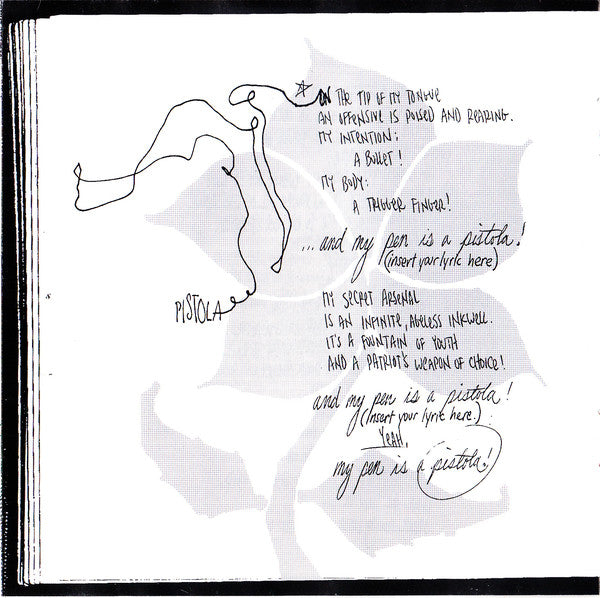 ON THE TIP OF MY TONGUE
AN OFFENSIVE IS POISED AND REARING.
MY INTENTION:
A BULLET!
MY BODY:
A TRIGGER FINGER!
...and my pen is a pistola!
(insert your lyric here)
PISTOLA
MY SECRET ARSENAL
IS AN INFINITE, AGELESS INKWELL.
IT'S A FOUNTAIN OF YOUTH
AND A PATRIOT'S WEAPON OF CHOICE!
and my pen is a pistola!
(insert your lyric here.)
YEAH,
my pen is a pistola!